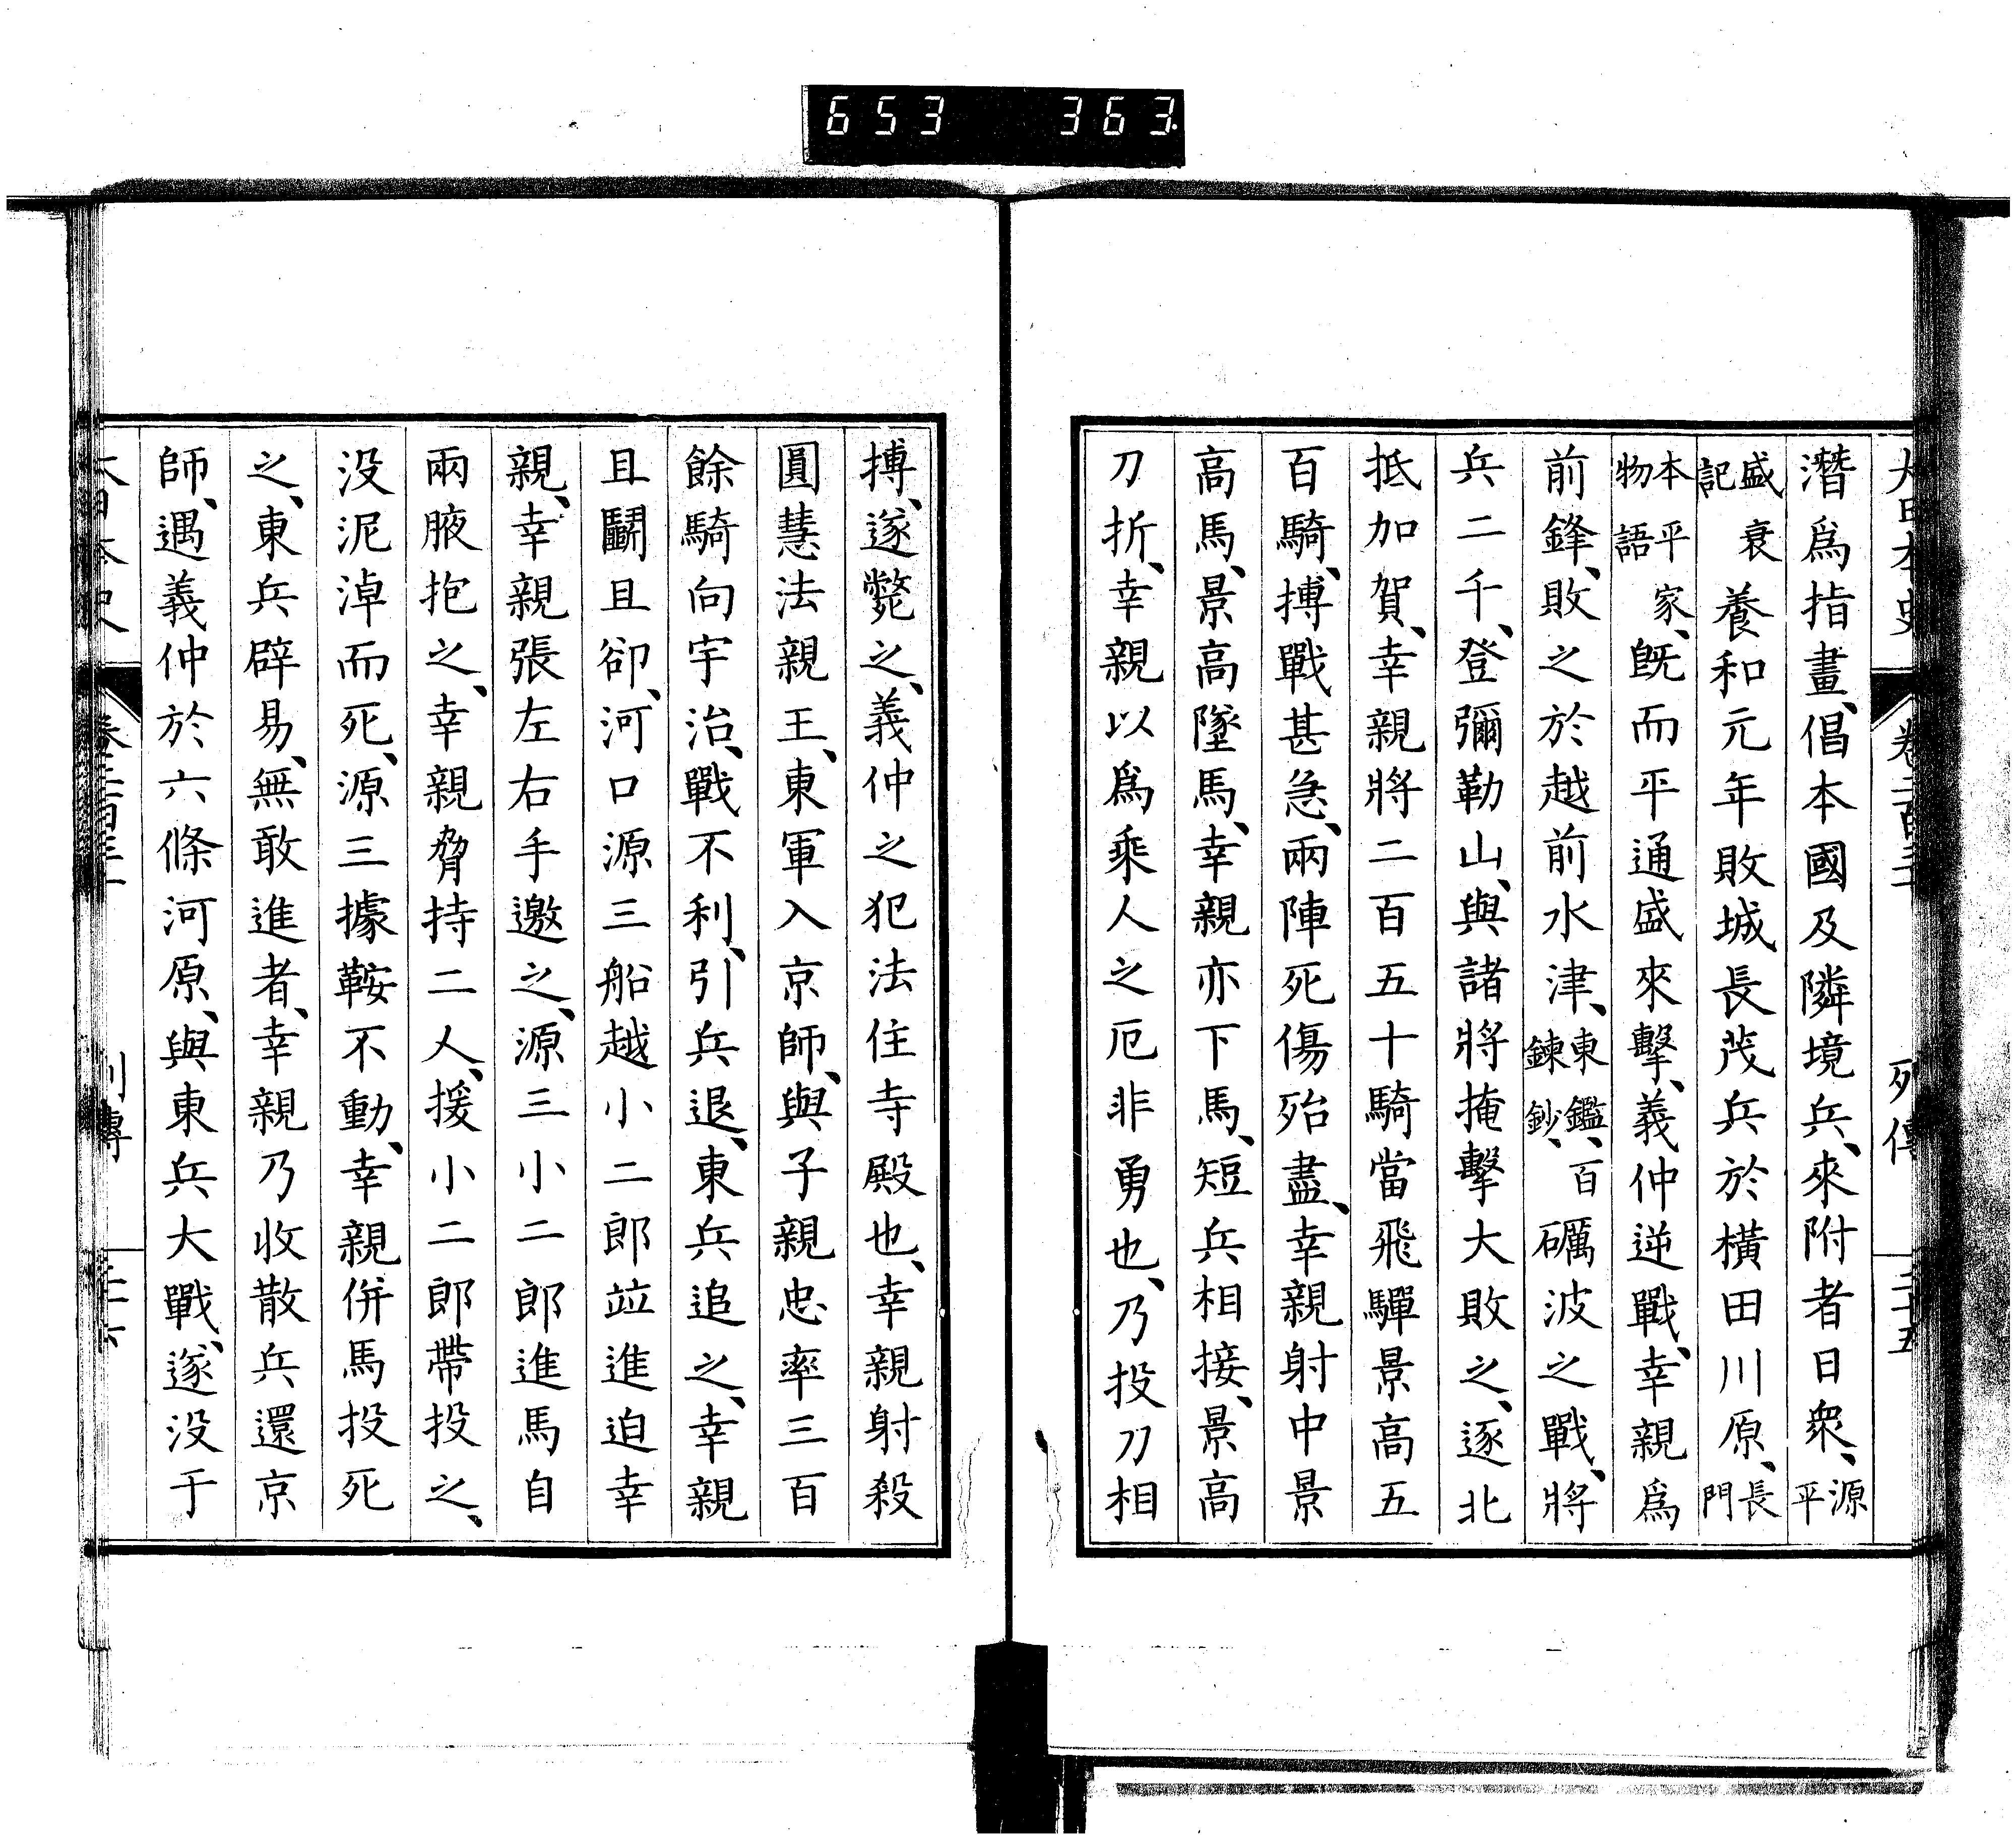 653 363
大日本史 卷二百三十一 列傳 三十五
潛爲指畫、倡本國及隣境兵、來附者日衆、源平
盛衰記養和元年敗城長茂兵於橫田川原、長門
本平家物語、既而平通盛來擊、義仲逆戰、幸親爲
前鋒、敗之於越前水津、東鑑、百鍊鈔、礪波之戰、將
兵二千、登彌勒山、與諸將掩擊大敗之、逐北
抵加賀、幸親將二百五十騎當飛驒景高五
百騎、搏戰甚急、兩陣死傷殆盡、幸親射中景
高馬、景高墜馬、幸親亦下馬、短兵相接、景高
刀折、幸親以爲乘人之厄非勇也、乃投刀相
搏、遂斃之、義仲之犯法住寺殿也、幸親射殺
圓慧法親王、東軍入京師、與子親忠率三百
餘騎向宇治、戰不利、引兵退、東兵追之、幸親
且鬭且卻、河口源三船越小二郎竝進迫幸
親、幸親張左右手邀之、源三小二郎進馬自
兩腋抱之、幸親脅持二人、援小二郎帶投之、
没泥淖而死、源三據鞍不動、幸親併馬投死
之、東兵辟易、無敢進者、幸親乃收散兵還京
師、遇義仲於六條河原、與東兵大戰、遂没于
大日本史 卷二百三十一 列傳 三十六